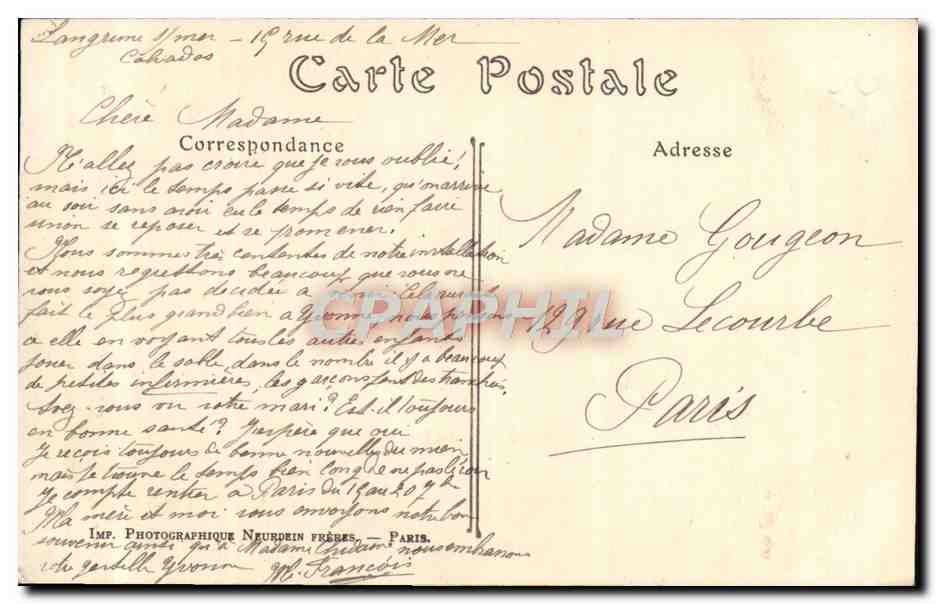 Langrune s/mer - 15 rue de la Mer
Calvados
Carte Postale
Chère Madame
Correspondance
N'allez pas croire que je vous oublie!
mais ici le temps passe si vite, qu'on arrive
au soir sans avoir eu le temps de rien faire
sinon se reposer et se promener.
Nous sommes très contentes de notre installation
et nous regrettons beaucoup que vous ne
vous soyez pas décidée à venir cela aurait
fait le plus grand bien à Yvonne, nous pensons
à elle en voyant tous les autres enfants
jouer dans le sable, dans le nombre il y a beaucoup
de petites infirmières, les garçons font des tranchées.
Avez-vous vu votre mari? Est-il toujours
en bonne santé? J'espère que oui
Je reçois toujours de bonne nouvelles du mien
mais je trouve le temps bien long de ne pas le voir
Je compte rentrer à Paris du 15 au 20 7bre
Ma mère et moi vous envoyons notre bon
IMP. PHOTOGRAPHIQUE NEURDEIN FRÈRES. — PARIS.
souvenir ainsi qu'à Madame nous embrassons
votre gentille Yvonne M. François
Adresse
Madame Gougeon
129 rue Lecourbe
Paris
CPAPHIL